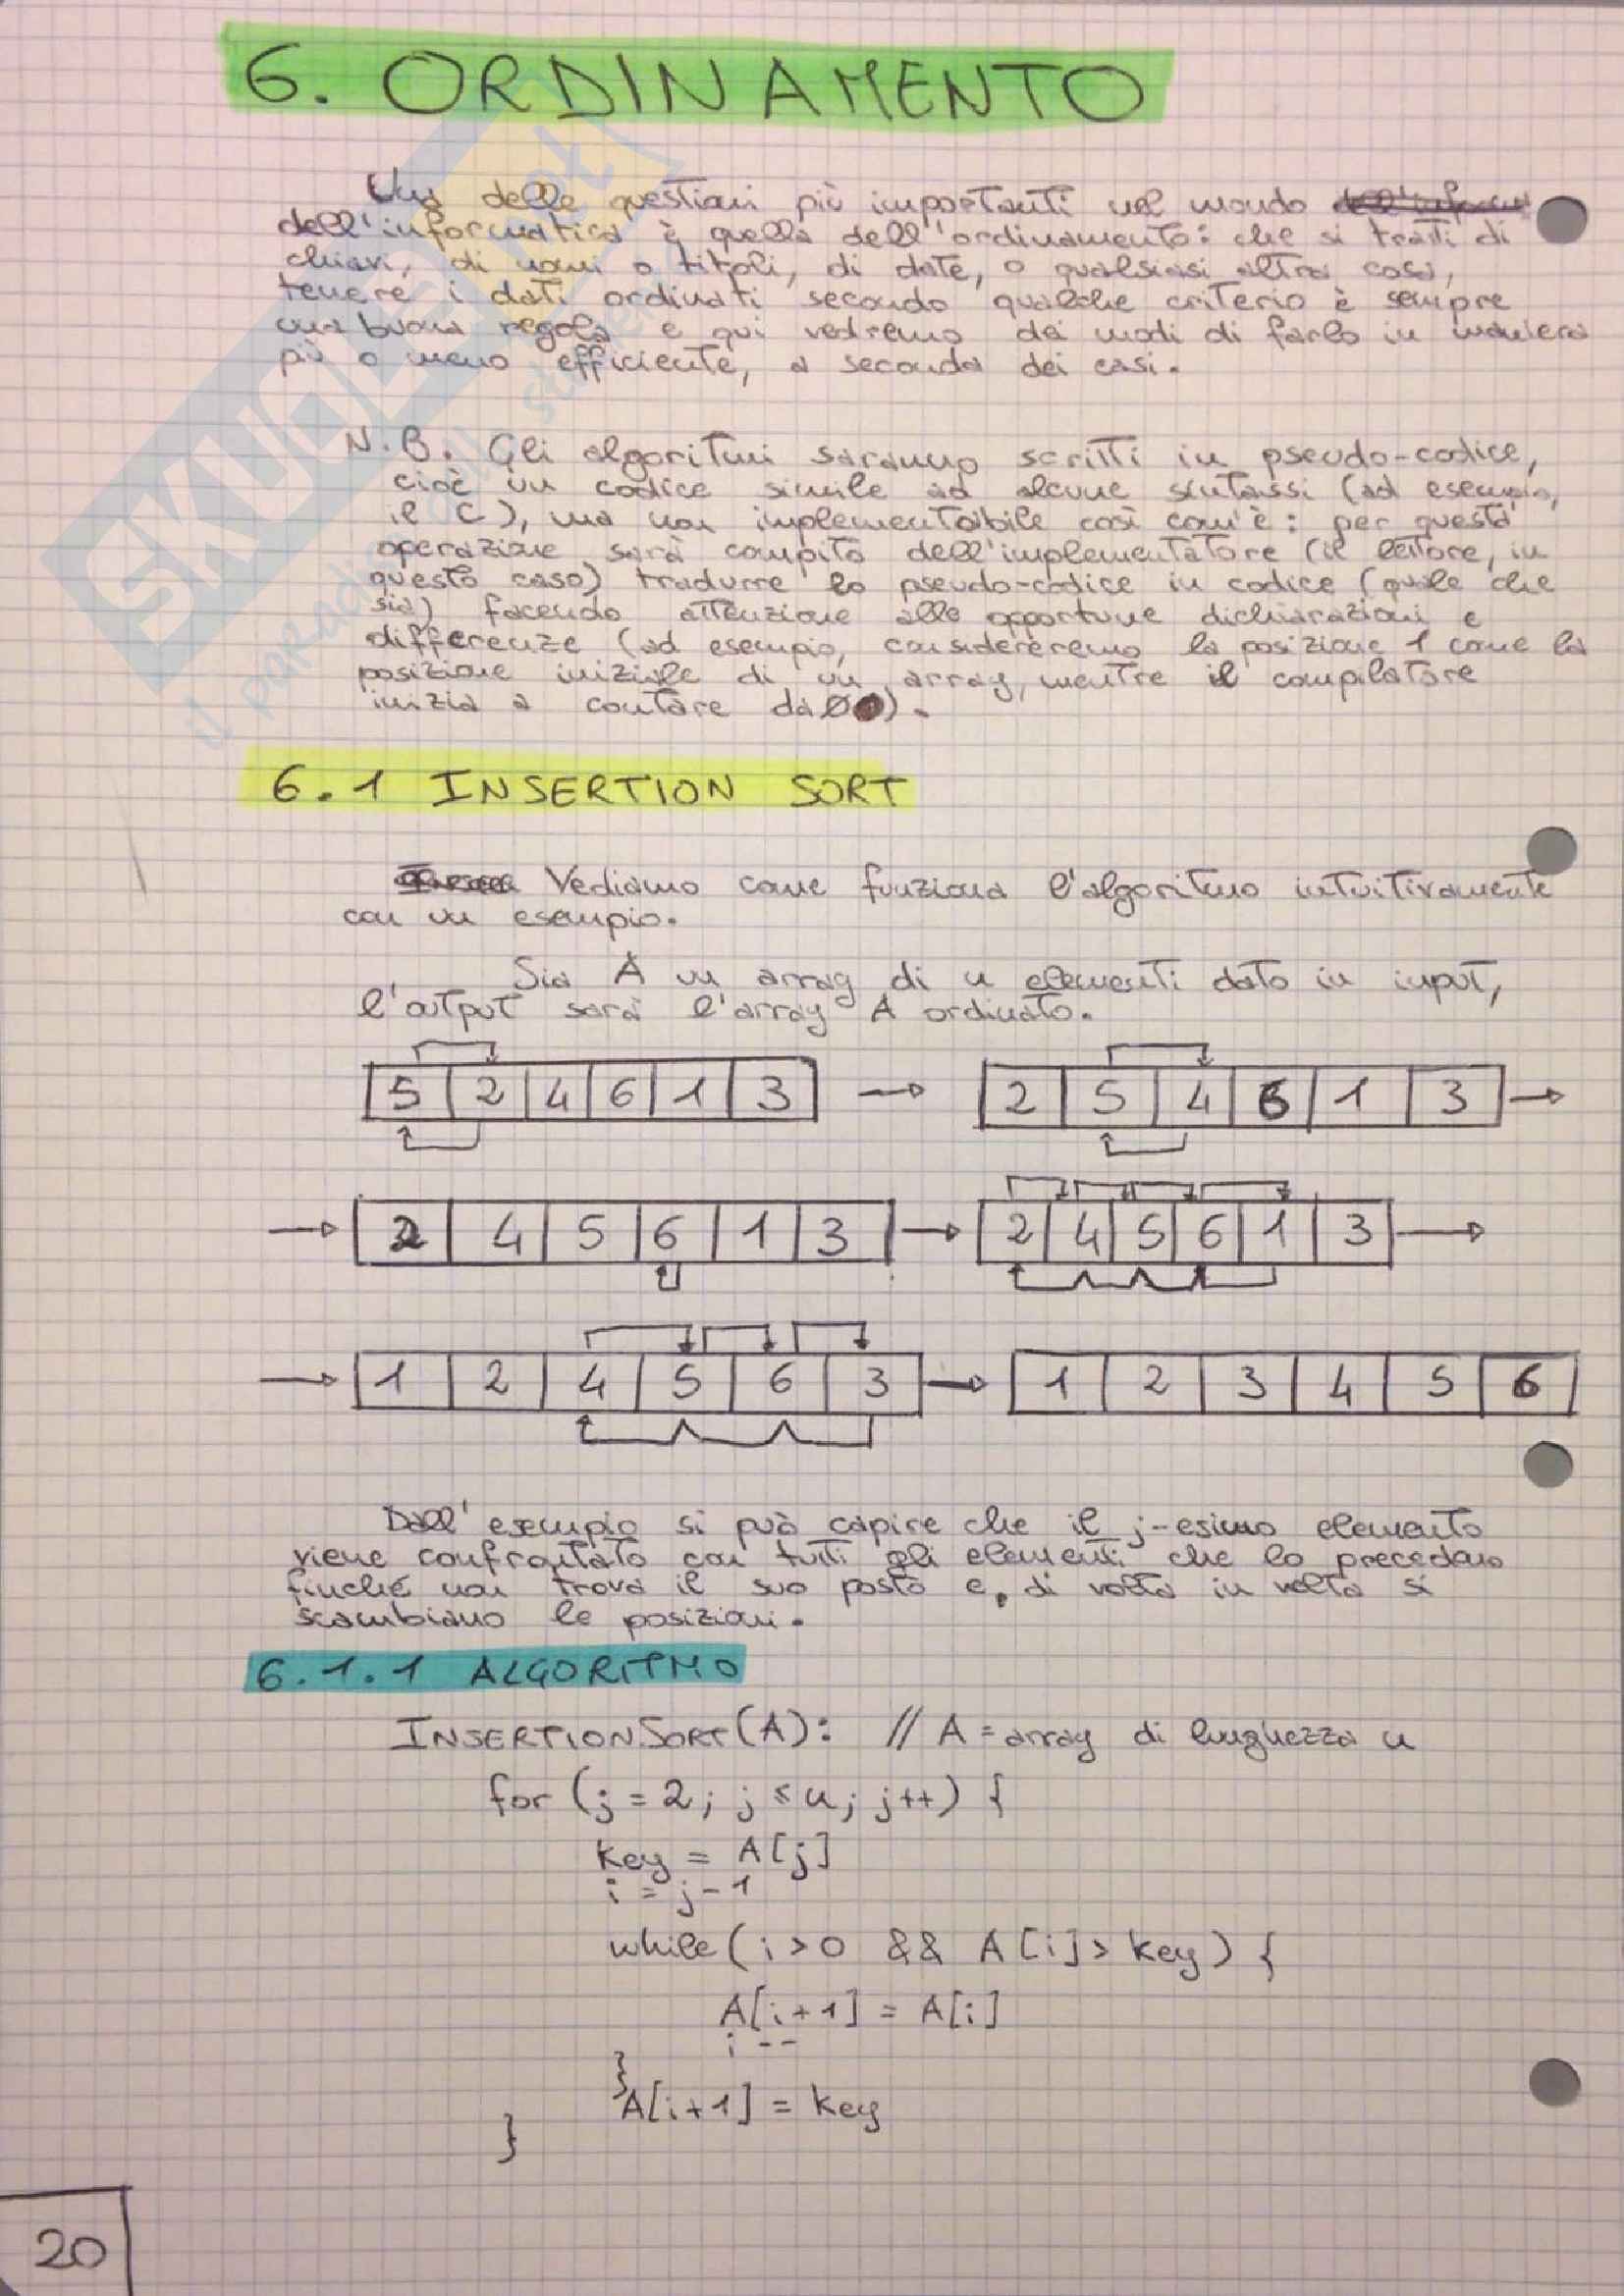 6. ORDINAMENTO
Una delle questioni più importanti nel mondo
dell'informatica è quella dell'ordinamento: che si tratti di
chiavi, di nomi o titoli, di date, o qualsiasi altra cosa,
tenere i dati ordinati secondo qualche criterio è sempre
una buona regola e qui vedremo dei modi di farlo in maniera
più o meno efficiente, a seconda dei casi.
N.B. Gli algoritmi saranno scritti in pseudo-codice,
cioè un codice simile ad alcune sintassi (ad esempio,
il C), ma non implementabile così com'è: per questa
operazione sarà compito dell'implementatore (il lettore, in
questo caso) tradurre lo pseudo-codice in codice (quale che
sia) facendo attenzione alle opportune dichiarazioni e
differenze (ad esempio, considereremo la posizione 1 come la
posizione iniziale di un array, mentre il compilatore
inizia a contare da 0).
6.1 INSERTION SORT
Vediamo come funziona l'algoritmo intuitivamente
con un esempio.
Sia A un array di n elementi dato in input,
l'output sarà l'array A ordinato.
5 2 4 6 1 3 → 2 5 4 6 1 3 →
→ 2 4 5 6 1 3 → 2 4 5 6 1 3 →
→ 1 2 4 5 6 3 → 1 2 3 4 5 6
Dall'esempio si può capire che il j-esimo elemento
viene confrontato con tutti gli elementi che lo precedono
finché non trova il suo posto e, di volta in volta si
scambiano le posizioni.
6.1.1 ALGORITMO
INSERTIONSORT(A): // A = array di lunghezza n
for (j = 2; j ≤ n; j++) {
key = A[j]
i = j - 1
while (i > 0 && A[i] > key) {
A[i+1] = A[i]
i --
}
A[i+1] = key
}
20